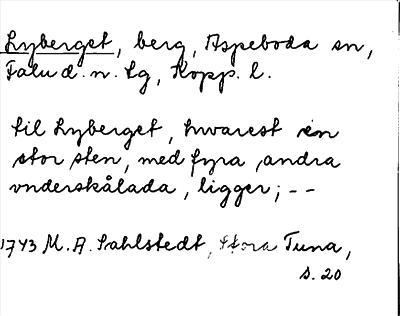 Lyberget, berg, Aspeboda sn,
Falu d. n. lg, Kopp. l.
til Lyberget, hwarest en
stor sten, med fyra andra
vnderskålada, ligger; - -
1743 M. A. Sahlstedt, Stora Tuna,
s. 20